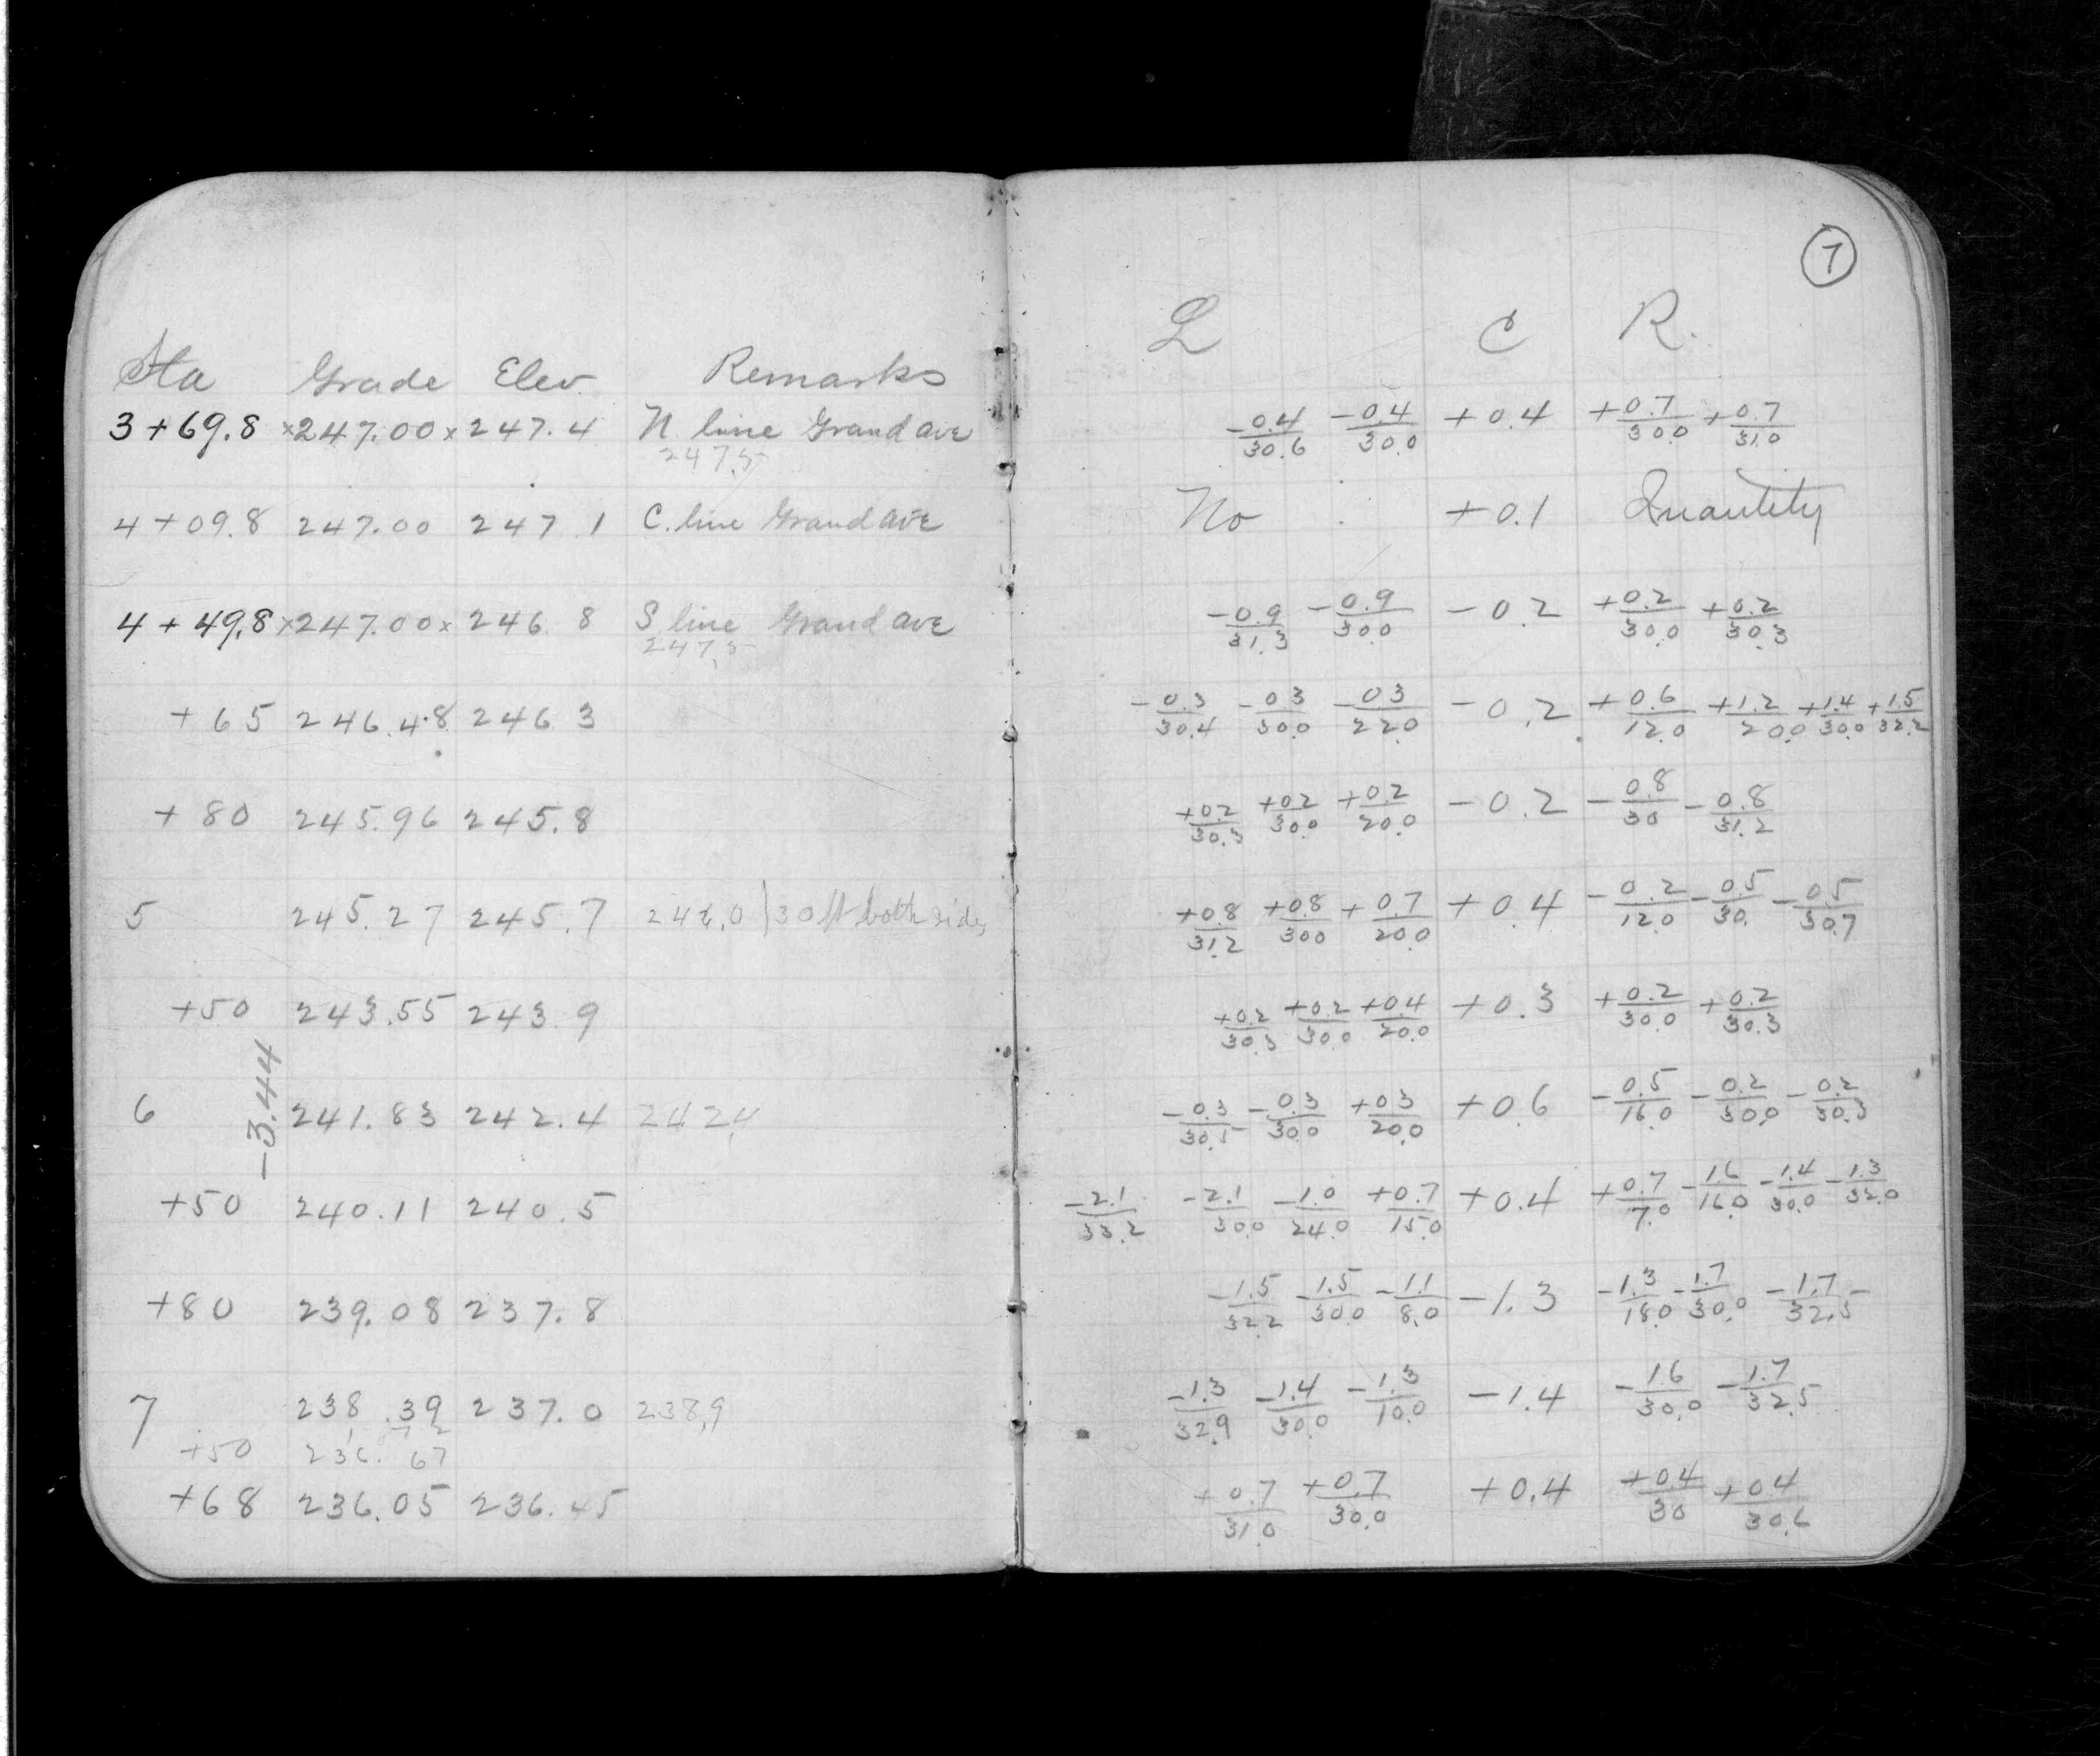 Sta Grade Elev. Remarks
3+69.8 ×247.00 × 247.4 N. line Grand ave
247.5
4+09.8 247.00 247 1 C. line Grand ave
4+49.8 ×247.00 × 246.8 S. line Grand ave
247.5
+65 246.48 246 3
+80 245.96 245.8
5 245.27 245.7 246.0 30 ft both sides
+50 243.55 243.9
-3.44
6 241.83 242.4 242.4
+50 240.11 240.5
+80 239.08 237.8
7 238.39 237.0 238.9
+50 236.67
+68 236.05 236.45
7
L C R.
-0.4/30.6 -0.4/30.0 +0.4 +0.7/30.0 +0.7/31.0
No +0.1 Quantity
-0.9/31.3 -0.9/30.0 -0.2 +0.2/30.0 +0.2/30.3
-0.3/30.4 -0.3/30.0 -0.3/22.0 -0.2 +0.6/12.0 +1.2/20.0 +1.4/30.0 +1.5/32.2
+0.2/30.3 +0.2/30.0 +0.2/20.0 -0.2 -0.8/30 -0.8/31.2
+0.8/31.2 +0.8/30.0 +0.7/20.0 +0.4 -0.2/12.0 -0.5/30. -0.5/30.7
+0.2/30.3 +0.2/30.0 +0.4/20.0 +0.3 +0.2/30.0 +0.2/30.3
-0.3/30.5 -0.3/30.0 +0.3/20.0 +0.6 -0.5/16.0 -0.2/30.0 -0.2/30.3
-2.1/33.2 -2.1/30.0 -1.0/24.0 +0.7/15.0 +0.4 +0.7/7.0 -1.6/16.0 -1.4/30.0 -1.3/32.0
-1.5/32.2 -1.5/30.0 -1.1/8.0 -1.3 -1.3/18.0 -1.7/30.0 -1.7/32.5
-1.3/32.9 -1.4/30.0 -1.3/10.0 -1.4 -1.6/30.0 -1.7/32.5
+0.7/31.0 +0.7/30.0 +0.4 +0.4/30 +0.4/30.6